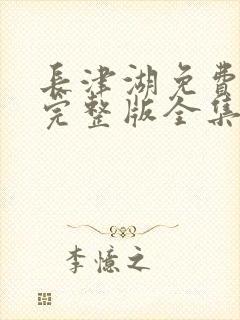 長津湖免費
完整版全集
李憶之